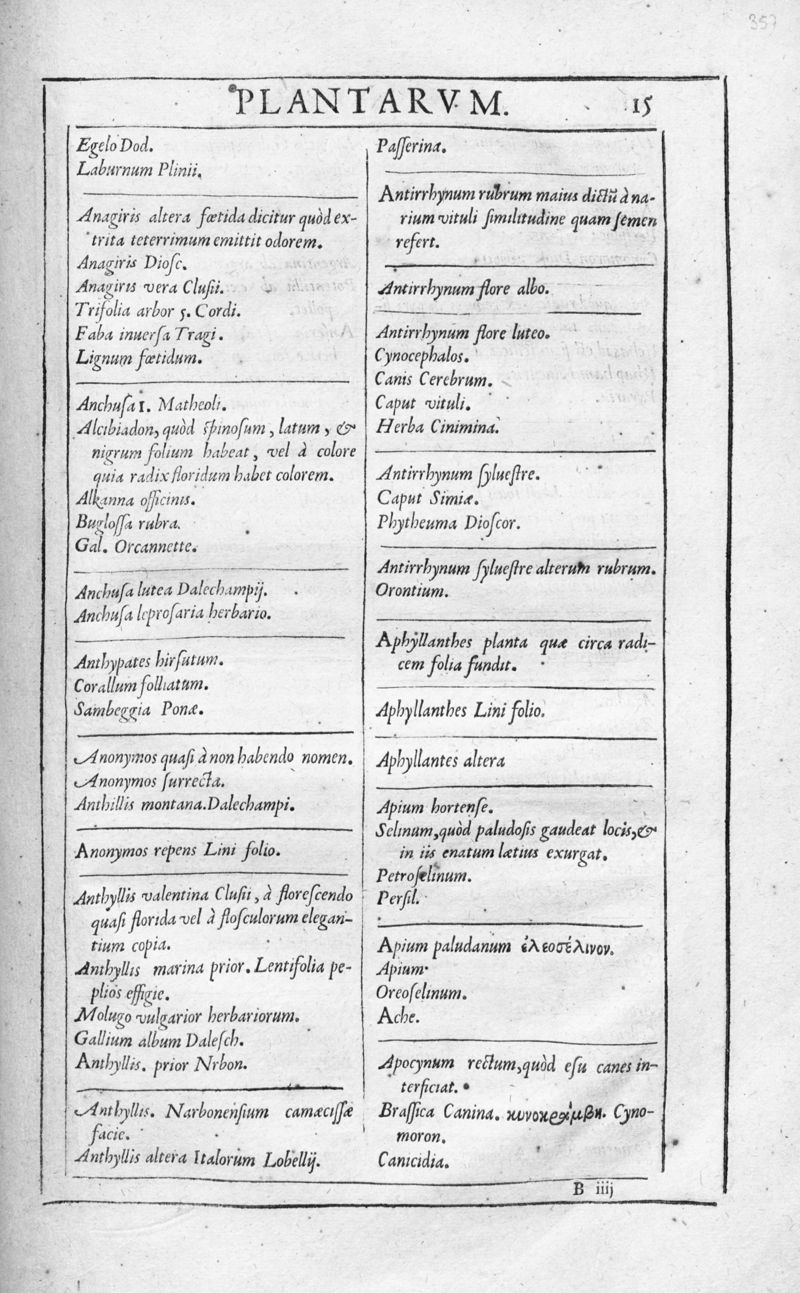 357
PLANTARVM.
15
Egelo Dod.
Laburnum Plinii.
Anagiris altera fœtida dicitur quòd ex-
trita teterrimum emittit odorem.
Anagiris Diosc.
Anagiris vera Clusii.
Trifolia arbor 5. Cordi.
Faba inuersa Tragi.
Lignum fœtidum.
Anchusa 1. Matheoli.
Alcibiadon, quòd spinosum, latum, &
nigrum folium habeat, vel à colore
quia radix floridum habet colorem.
Alkanna officinis.
Buglossa rubra.
Gal. Orcannette.
Anchusa lutea Dalechampij.
Anchusa leprosaria herbario.
Anthypates hirsutum.
Corallum folliatum.
Sambeggia Ponæ.
Anonymos quasi à non habendo nomen.
Anonymos surrecta.
Anthillis montana. Dalechampi.
Anonymos repens Lini folio.
Anthyllis valentina Clusii, à florescendo
quasi florida vel à flosculorum elegan-
tium copia.
Anthyllis marina prior. Lentifolia pe-
plios effigie.
Molugo vulgarior herbariorum.
Gallium album Dalesch.
Anthyllis. prior Nrbon.
Anthyllis. Narbonensium camæcissæ
facie.
Anthyllis altera Italorum Lobellij.
Passerina.
Antirrhynum rubrum maius dictū à na-
rium vituli similitudine quam semen
refert.
Antirrhynum flore albo.
Antirrhynum flore luteo.
Cynocephalos.
Canis Cerebrum.
Caput vituli.
Herba Cinimina.
Antirrhynum syluestre.
Caput Simiæ.
Phytheuma Dioscor.
Antirrhynum syluestre alterum rubrum.
Orontium.
Aphyllanthes planta quæ circa radi-
cem folia fundit.
Aphyllanthes Lini folio.
Aphyllantes altera
Apium hortense.
Selinum, quòd paludosis gaudeat locis, &
in iis enatum lætius exurgat.
Petroselinum.
Persil.
Apium paludanum ἑλεοσέλινον.
Apium.
Oreoselinum.
Ache.
Apocynum rectum, quòd esu canes in-
terficiat.
Brassica Canina. κυνοκράμβη. Cyno-
moron.
Canicidia.
B iiij